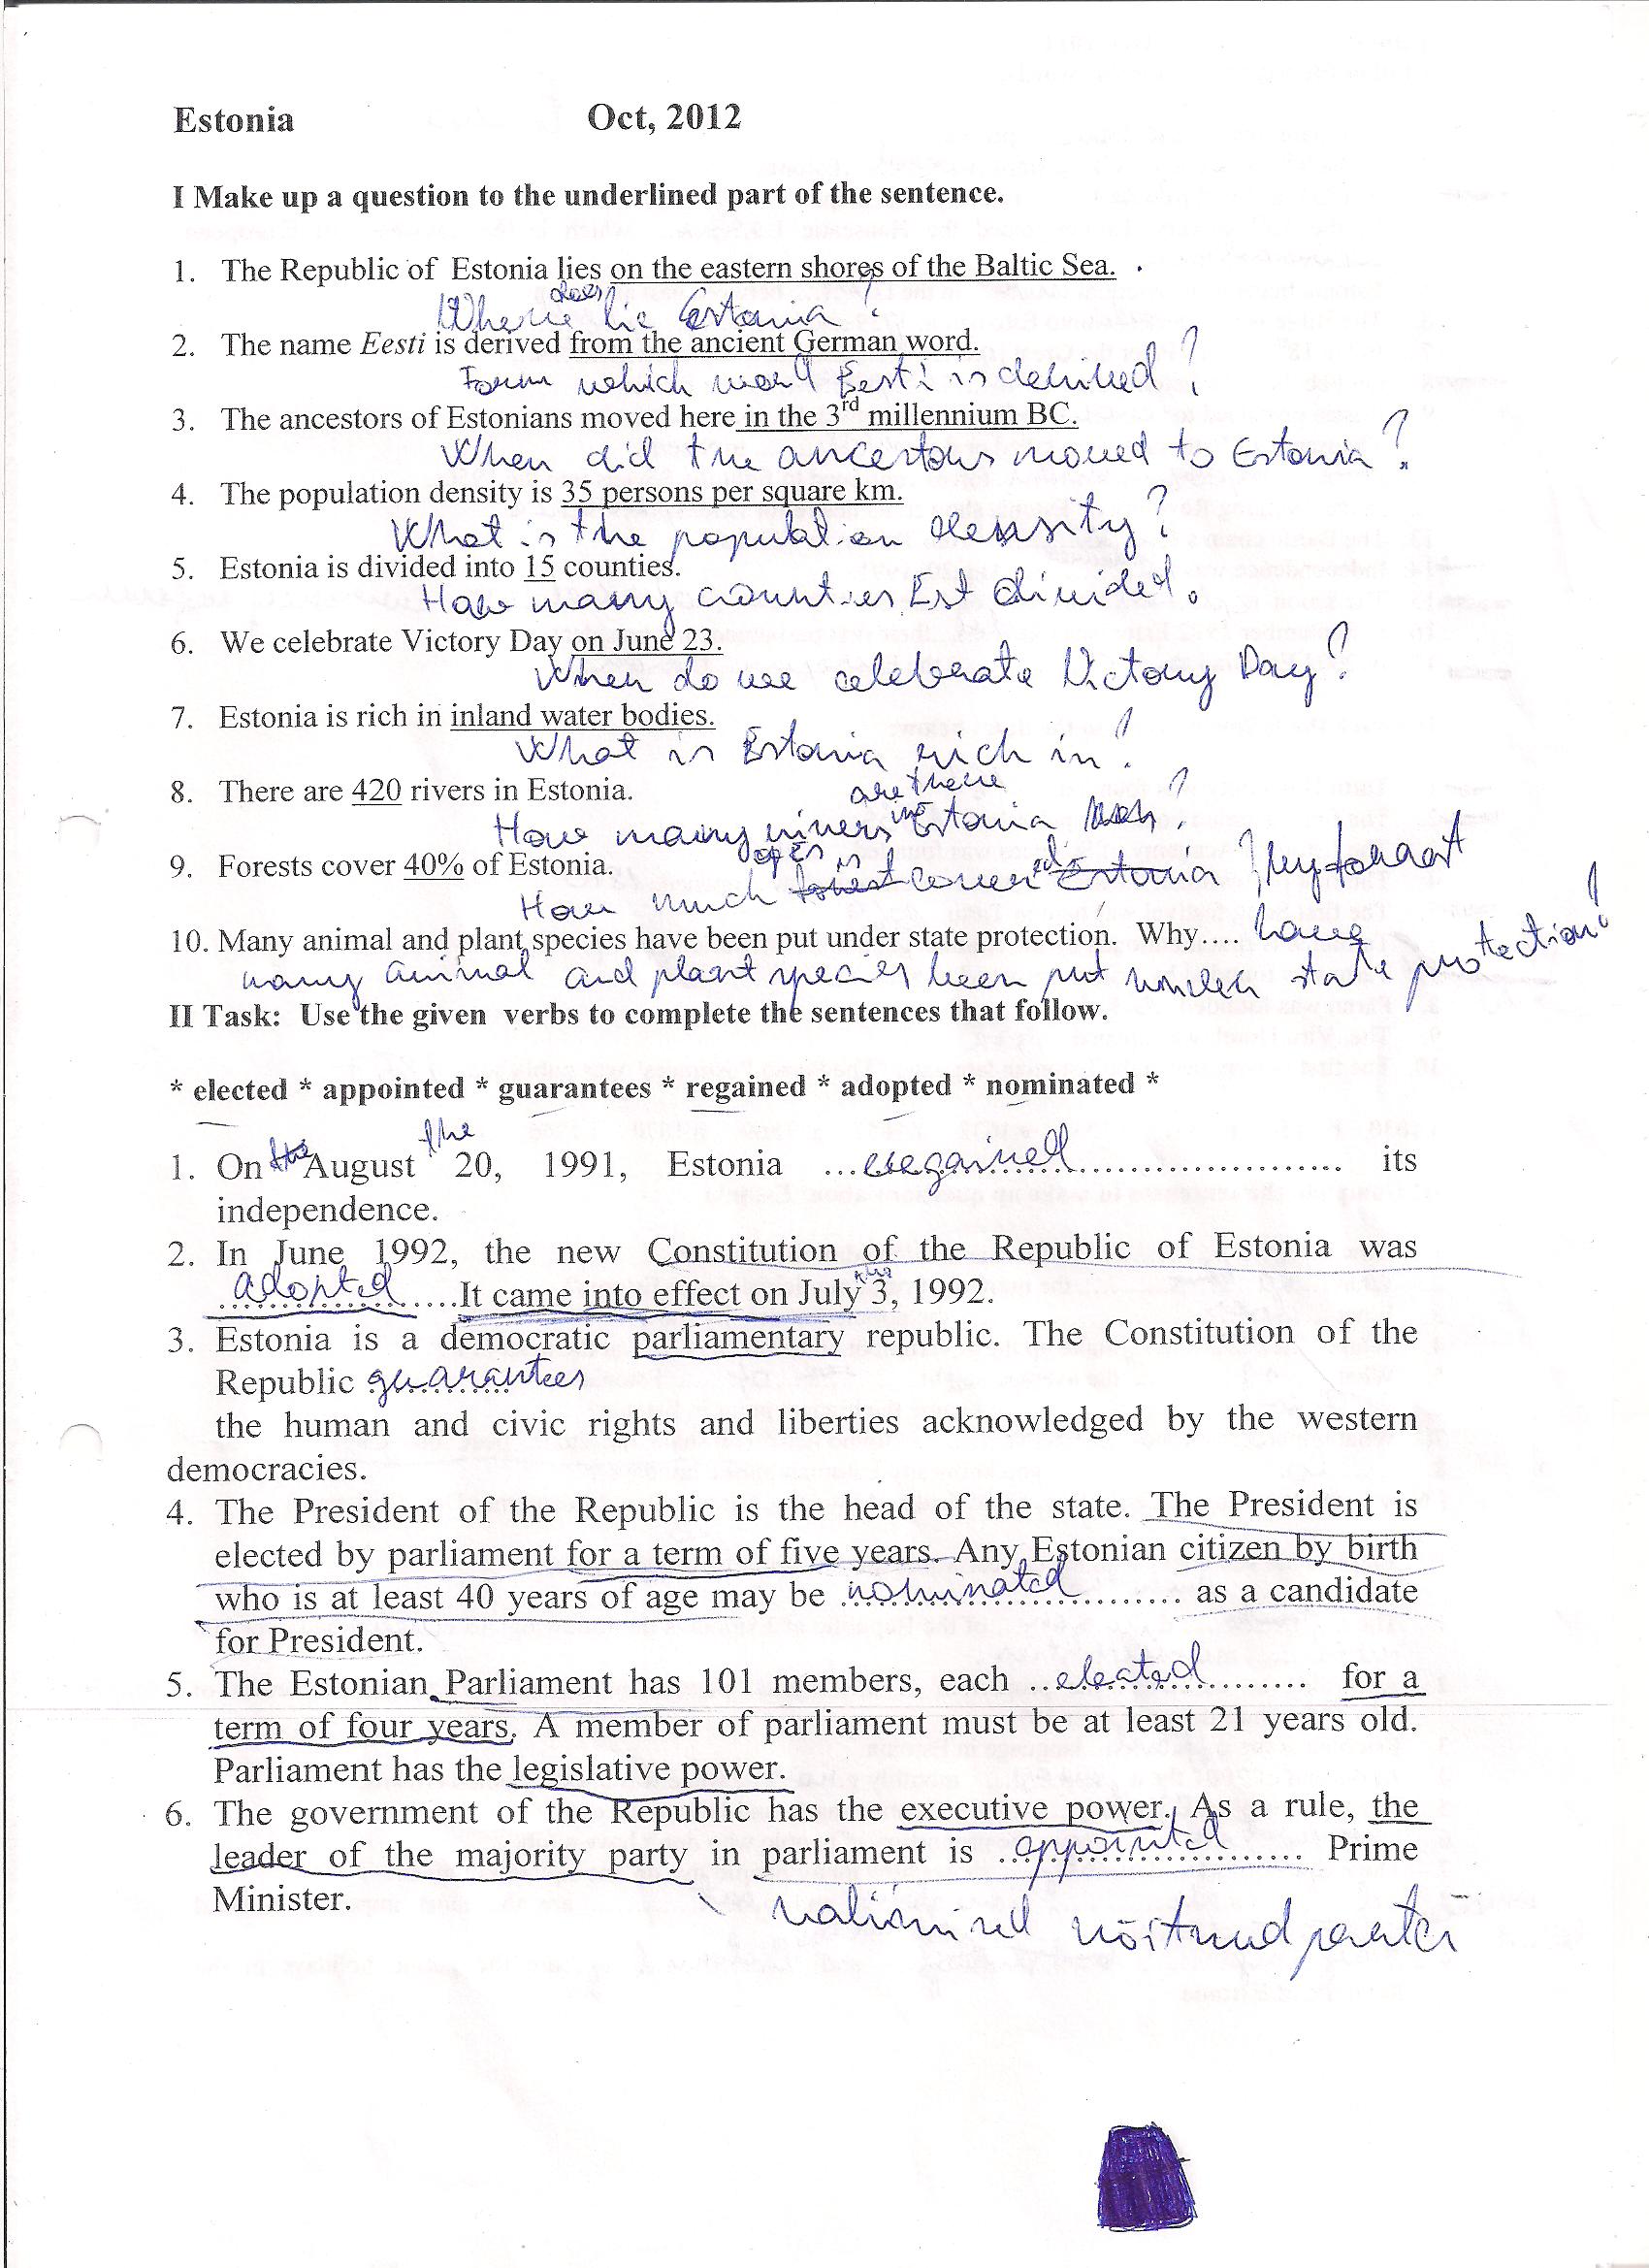 Estonia Oct, 2012
I Make up a question to the underlined part of the sentence.
1. The Republic of Estonia lies on the eastern shores of the Baltic Sea.
Where does lie Estonia?
2. The name Eesti is derived from the ancient German word.
Form which word Eesti is derived?
3. The ancestors of Estonians moved here in the 3rd millennium BC.
When did the ancestors moved to Estonia?
4. The population density is 35 persons per square km.
What is the population density?
5. Estonia is divided into 15 counties.
How many counties Est divided.
6. We celebrate Victory Day on June 23.
When do we celebrate Victory Day?
7. Estonia is rich in inland water bodies.
What is Estonia rich in?
8. There are 420 rivers in Estonia.
are there
How many rivers in Estonia ?
9. Forests cover 40% of Estonia.
of Es is
How much forest covered Estonia ? by forrest
10. Many animal and plant species have been put under state protection. Why.... have
many animal and plant species been put under state protection?
II Task: Use the given verbs to complete the sentences that follow.
* elected * appointed * guarantees * regained * adopted * nominated *
the
1. On the August 20, 1991, Estonia ...regained... its
independence.
2. In June 1992, the new Constitution of the Republic of Estonia was
adopted.....It came into effect on July the 3, 1992.
3. Estonia is a democratic parliamentary republic. The Constitution of the
Republic guarantees
the human and civic rights and liberties acknowledged by the western
democracies.
4. The President of the Republic is the head of the state. The President is
elected by parliament for a term of five years. Any Estonian citizen by birth
who is at least 40 years of age may be nominated........ as a candidate
for President.
5. The Estonian Parliament has 101 members, each ..elected......... for a
term of four years. A member of parliament must be at least 21 years old.
Parliament has the legislative power.
6. The government of the Republic has the executive power. As a rule, the
leader of the majority party in parliament is ...appointed...... Prime
Minister.
valimised võitnud partei